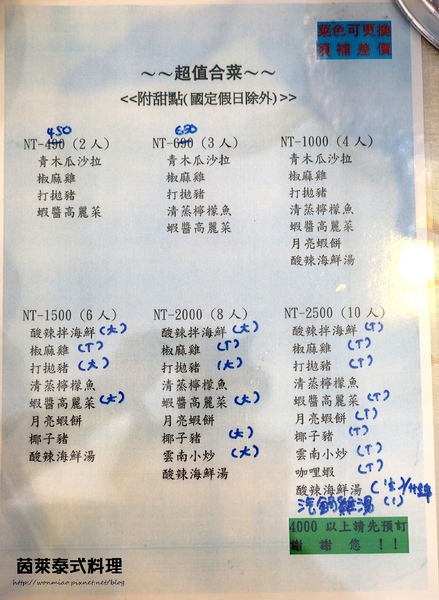 菜色可更換
須補差價
～～超值合菜～～
<<附甜點(國定假日除外)>>
450
NT-490 (2 人)
青木瓜沙拉
椒麻雞
打拋豬
蝦醬高麗菜
650
NT-690 (3 人)
青木瓜沙拉
椒麻雞
打拋豬
清蒸檸檬魚
蝦醬高麗菜
NT-1000 (4 人)
青木瓜沙拉
椒麻雞
打拋豬
清蒸檸檬魚
蝦醬高麗菜
月亮蝦餅
酸辣海鮮湯
NT-1500 (6 人)
酸辣拌海鮮 (大)
椒麻雞 (T)
打拋豬 (大)
清蒸檸檬魚
蝦醬高麗菜 (大)
月亮蝦餅
椰子豬
酸辣海鮮湯
NT-2000 (8 人)
酸辣拌海鮮 (大)
椒麻雞 (T)
打拋豬 (大)
清蒸檸檬魚
蝦醬高麗菜 (大)
月亮蝦餅
椰子豬 (大)
雲南小炒 (大)
酸辣海鮮湯
NT-2500 (10 人)
酸辣拌海鮮 (T)
椒麻雞 (T)
打拋豬 (T)
清蒸檸檬魚
蝦醬高麗菜 (T)
月亮蝦餅 (T)
椰子豬 (T)
雲南小炒 (T)
咖哩蝦 (T)
酸辣海鮮湯
汽鍋雞湯
4000 以上請先預訂
謝謝您！！
茵萊泰式料理
http://wonmiao.pixnet.net/blog